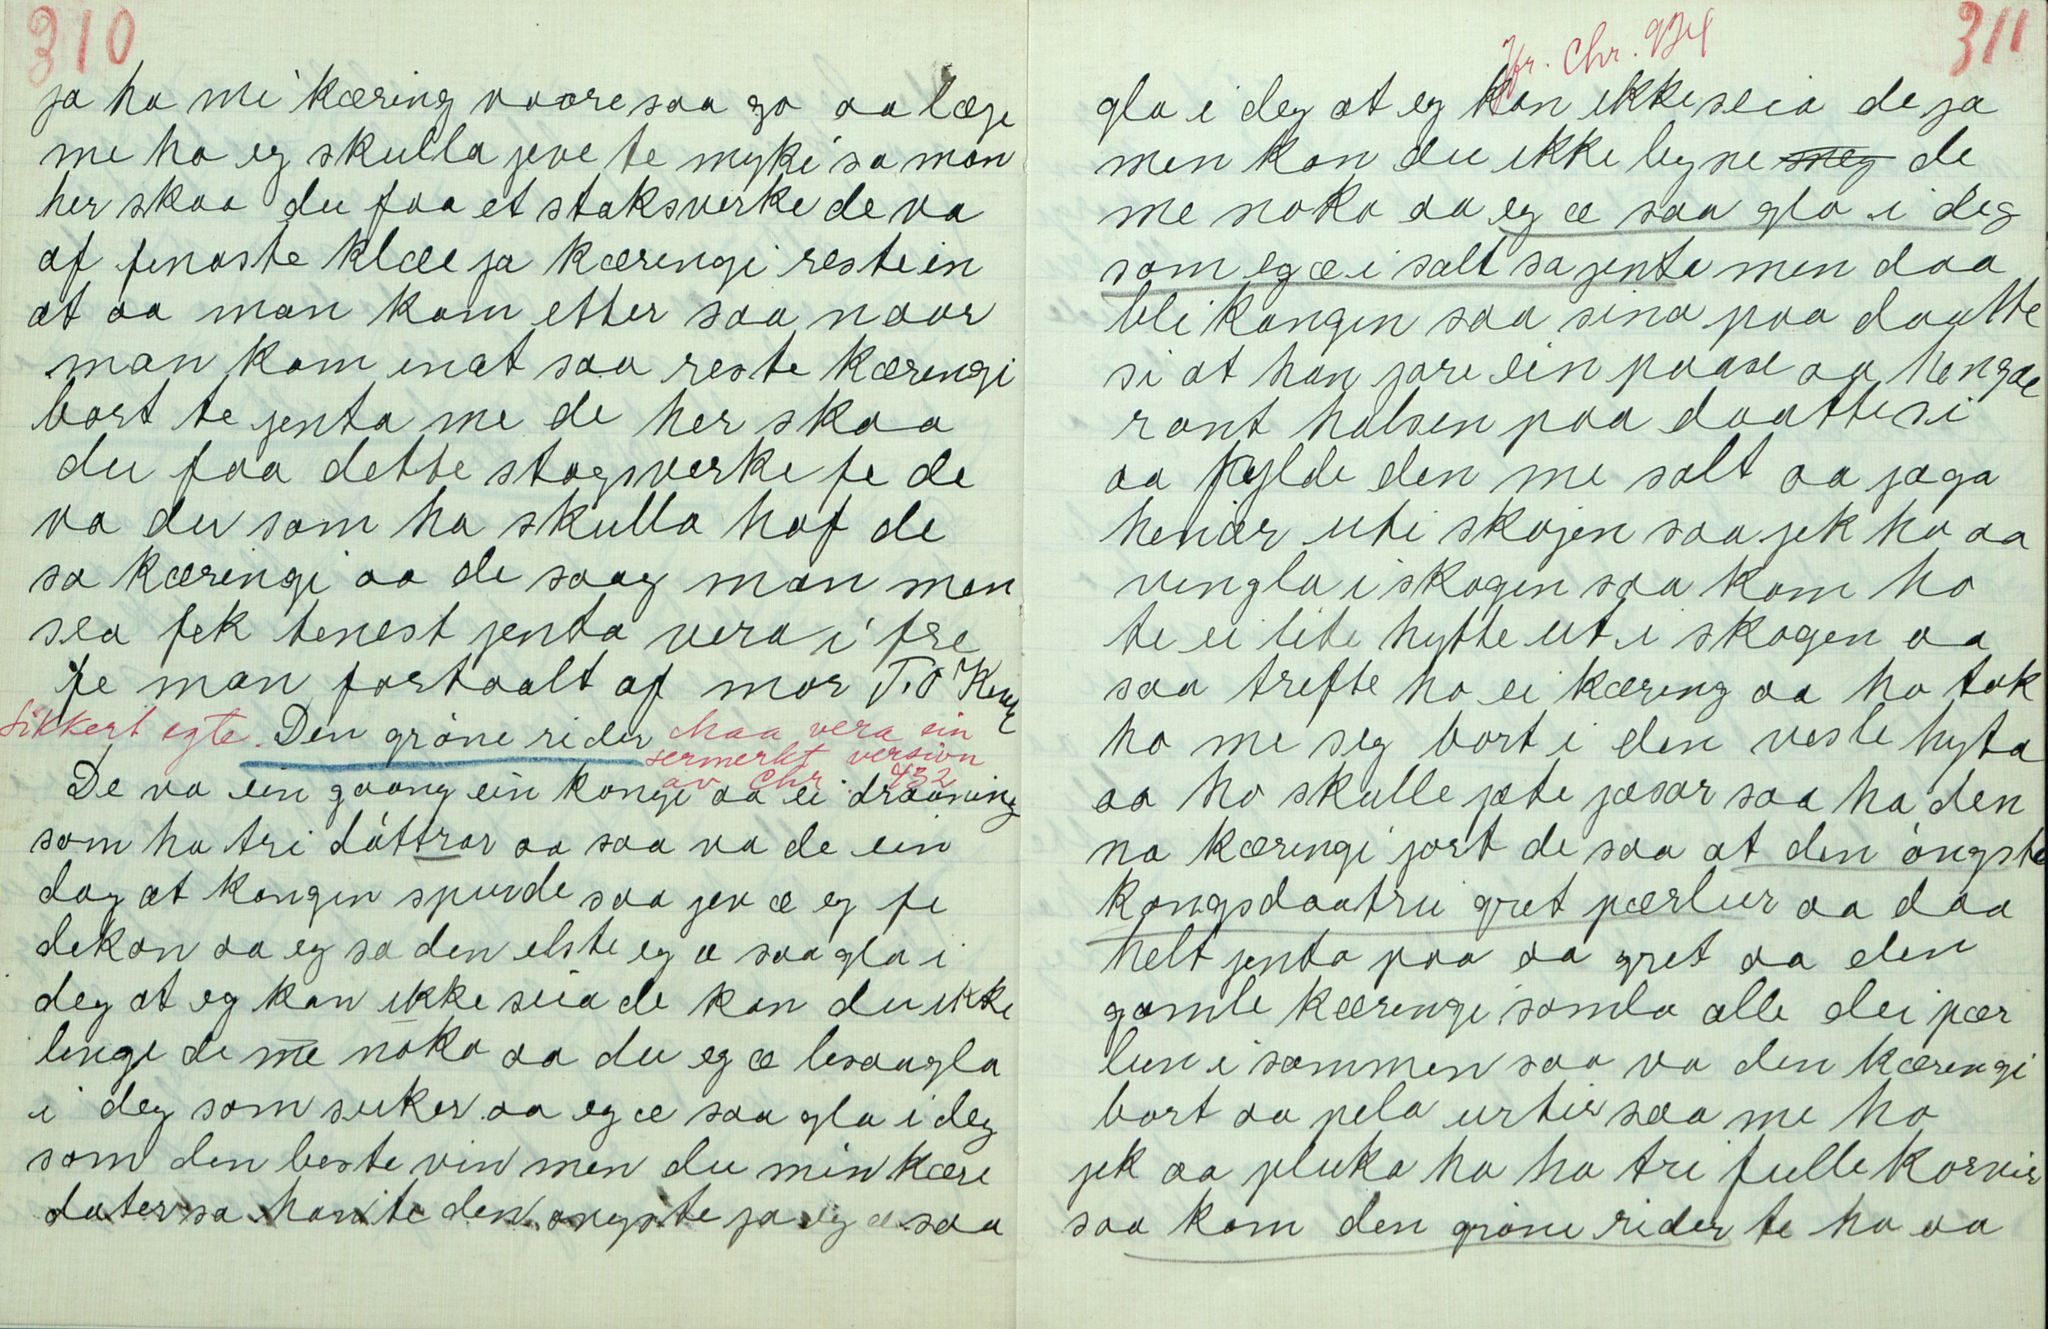 310
ja ha mi kæring vaare saa go aa læge
me ha eg skulla jeve te myki sa man
her skaa du faa et staksverke de va
af finaste klæe ja kæringi reste in
at aa man kom etter saa naar
man kom inat saa reste kæringi
bort te jenta me de her skaa
du faa dette stagsverke fe de
va du som ha skulla haf de
sa kæringi aa de saag man men
sea fek tenest jenta vera i fre
fe man fortaalt af mor T. O
Sikkert egte. Den gróne rider Maa vera ein
sermerkt version
av Chr. 432
De va ein gaang ein kongi aa ei draaning
som ha tri dóttrar aa saa va de ein
dag at kongin spurde saa jev æ eg fe
dekan aa eg sa den elste eg æ saa gla i
deg at eg kan ikke seia de kan du ikke
linge de me noko aa du eg æ lesaagla
i deg som suker aa eg æ saa gla i deg
som den beste vin men du min kære
dater sa han te den ongste ja eg æ saa
311
Jfr. Chr.
gla i deg at eg kan ikke seia de ja
men kan du ikke legne meg de
me noko aa eg æ saa gla i deg
som eg æ i salt sa jenta men daa
bli kongin saa sina paa daatte
si at han jore ein paase aa hengde
ront halsen paa daatte si
aa fylde den me salt aa jaga
henar uti skojen saa jek ho aa
vengla i skogin saa kom ho
te ei lite hytte ut i skogen aa
saa trefte ho ei kæring aa ho tok
ho me seg bort i den vesle hyta
aa ho skulle jæte jæsar saa ha den
na kæringi jort de saa at den óngste
kongsdaatri gret pærlur aa daa
helt jenta paa aa gret aa den
gamle kæringi samla alle dei pær
lun i sammen saa va den kæringi
bort aa pela urtir saa me ho
jek aa pluka ha ho tri fulle korvir
saa kom den gróne rider te ho aa